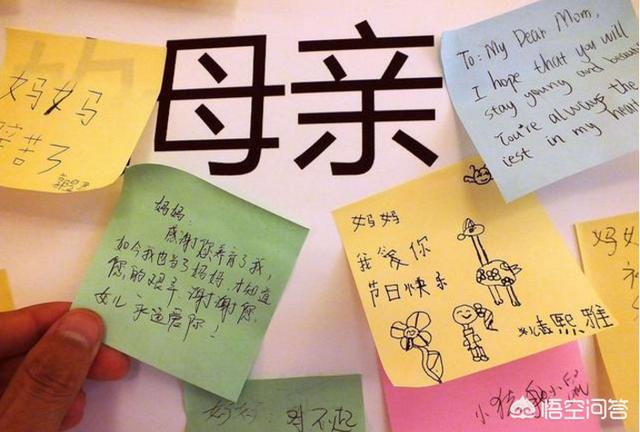 母亲
妈妈
辛苦了
To: My Dear Mom,
I hope that you will
stay young and
You're always the
in my
妈妈:
感谢您养育了我,
如今我也当了妈妈,才知道
您的艰辛,谢谢您,
女儿永远爱你!
妈妈
我爱你
节日快乐
熙雅
妈妈
对不起
小
悟空问答